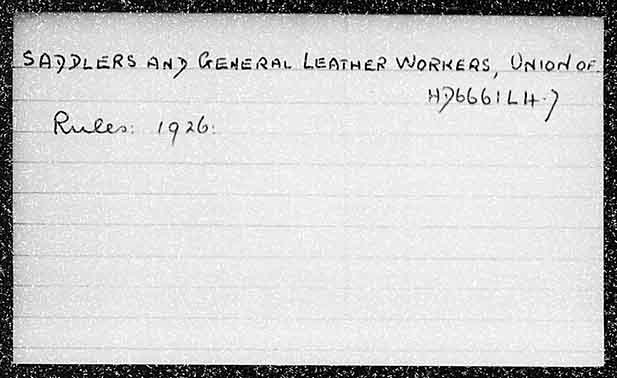 SADDLERS AND GENERAL LEATHER WORKERS, UNION OF
HD6661 LH.7
Rules: 1926.